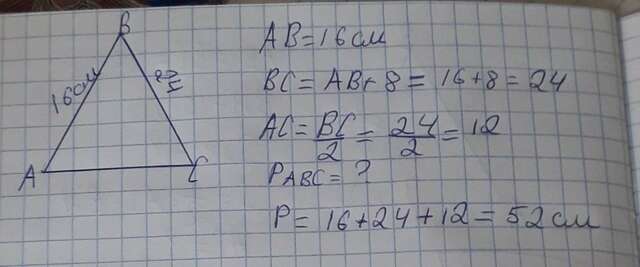 B
16см
A
C
AB=16см
BC= AB+8 = 16+8 = 24
AC= BC/2 = 24/2 = 12
PABC= ?
P= 16+24+12 = 52см